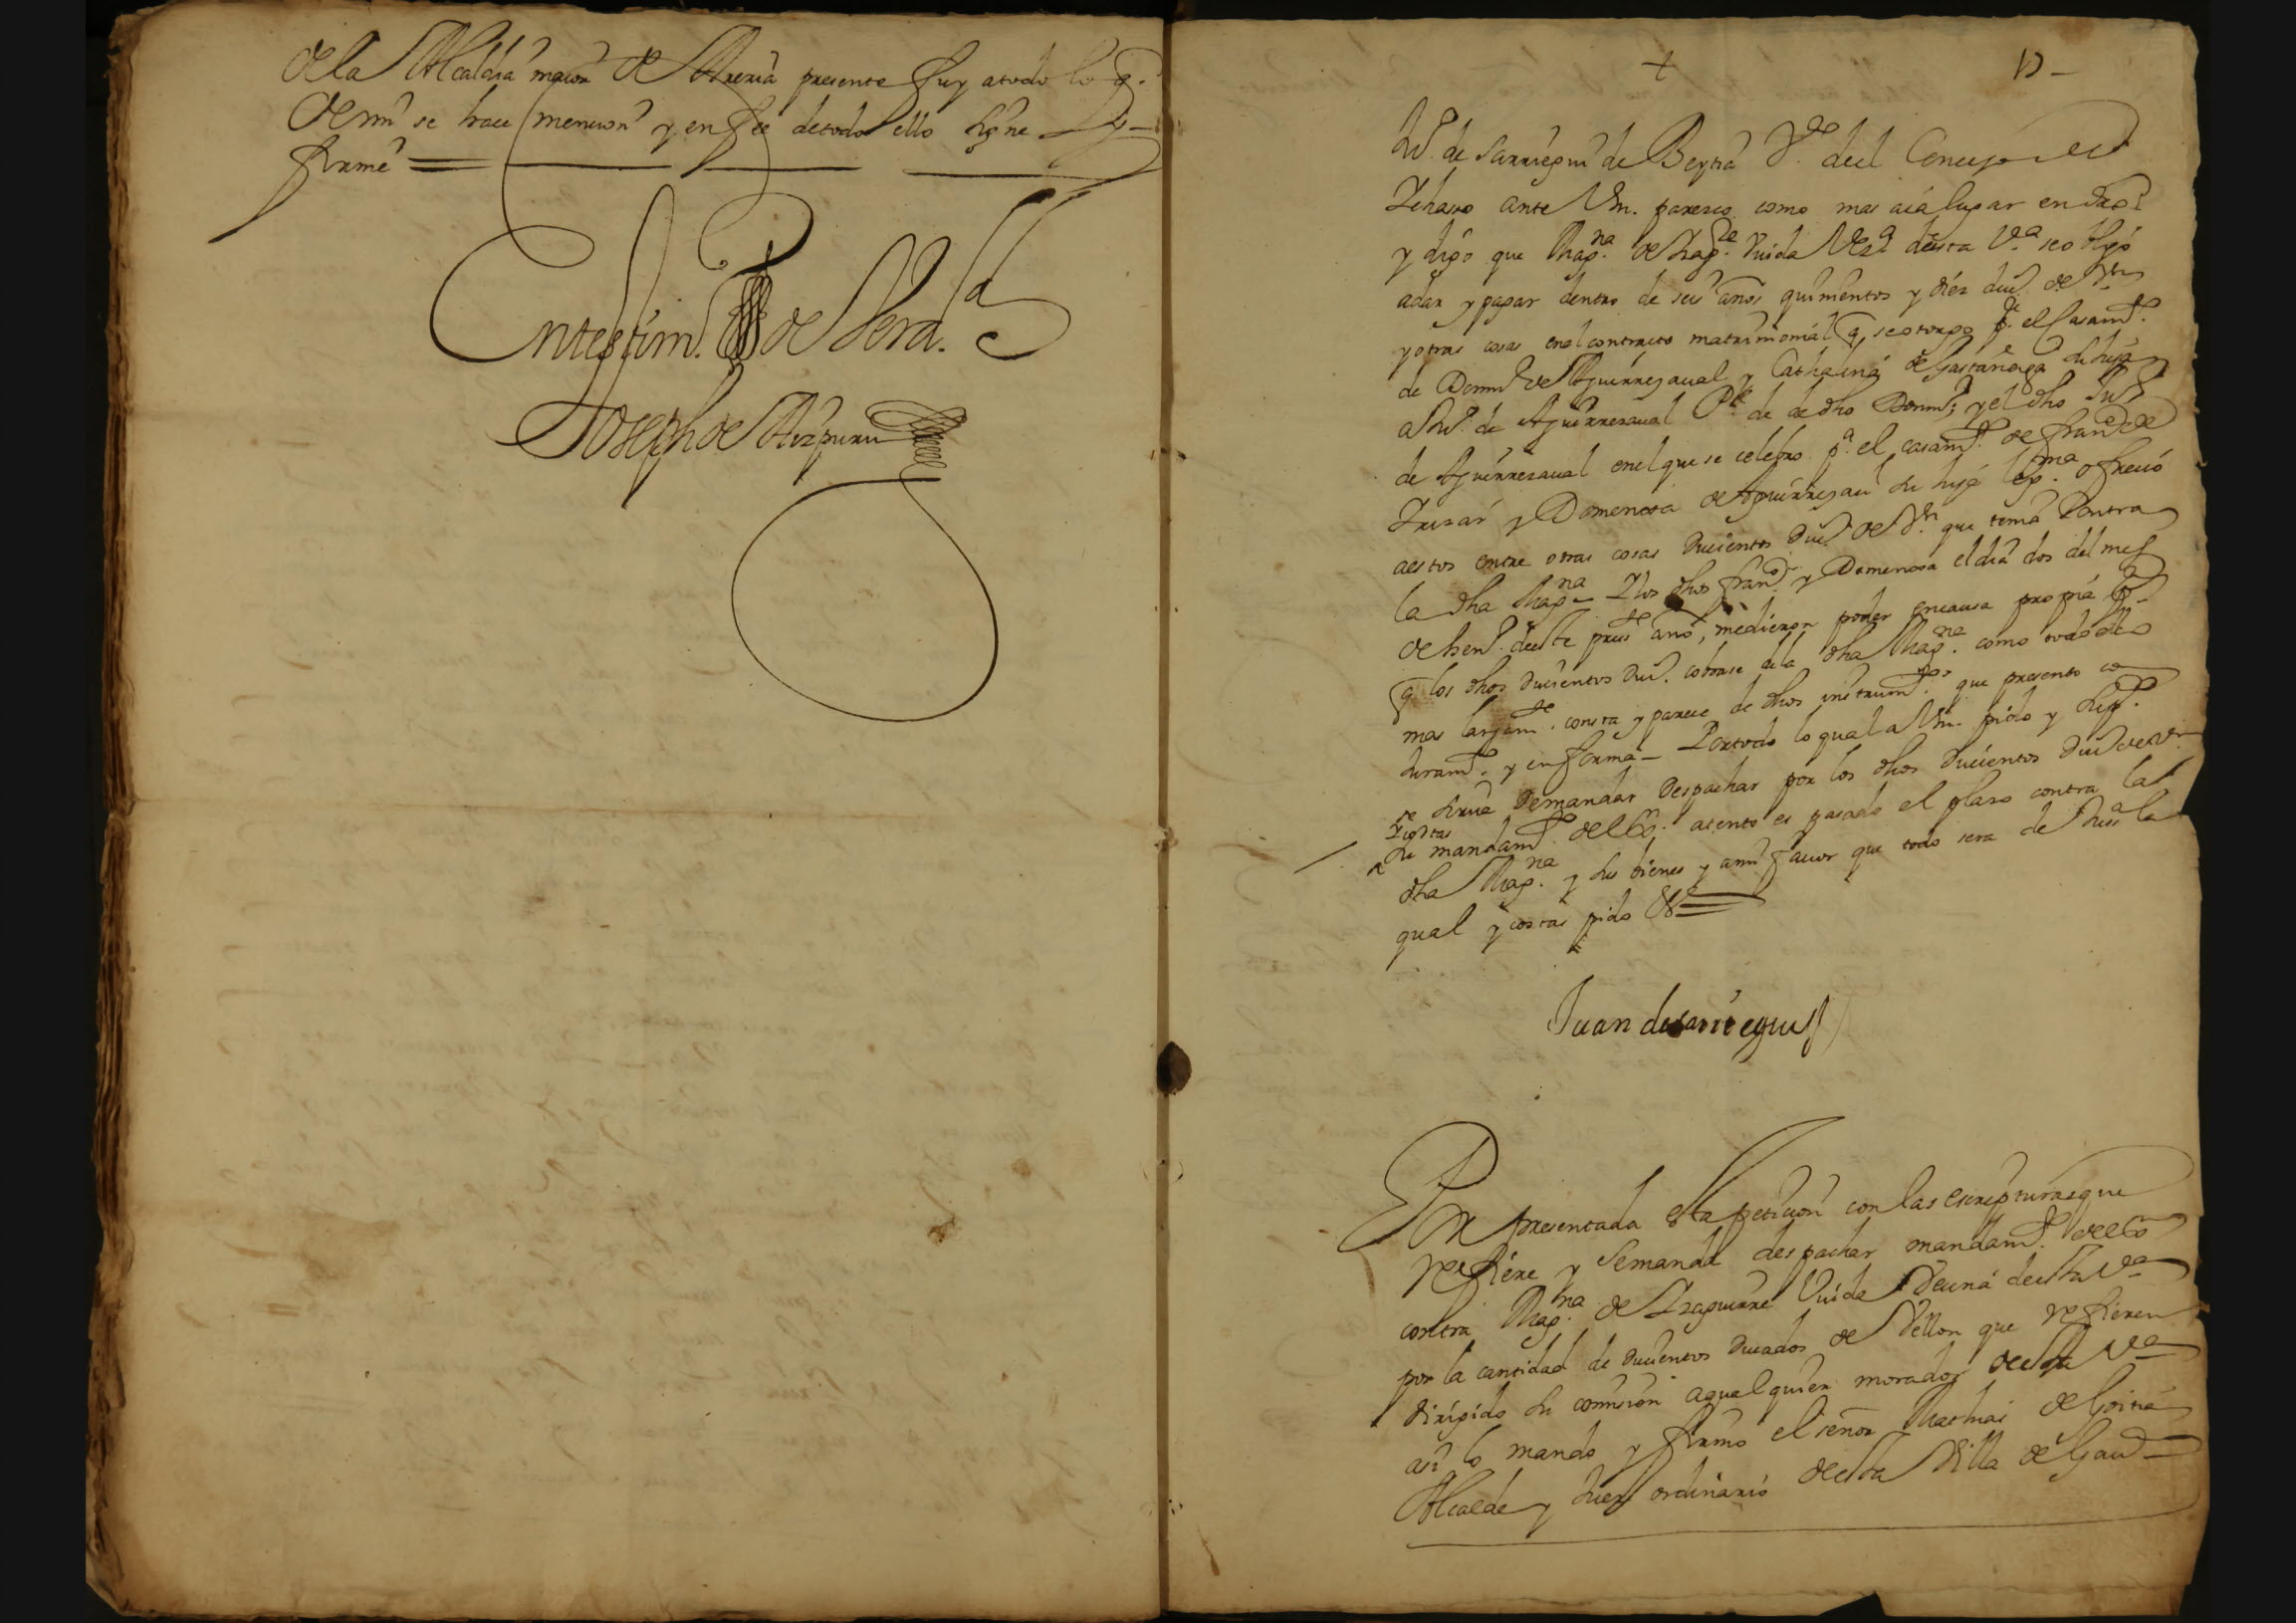 de la Alcaldia maior de Areria presente fuy a todo lo q.
de mi se hace mencion y en fee de todo ello signe y
firme
En testim.º de Verd.ª
Joseph de Aizpuru
+
Ju.º de Sarriegui de Beytia V.º del Concejo de
Ichasso ante Vm. paresco como mas aia lugar en dro
y digo que Mag.na de Izag.re Viuda Vez.ª desta V.ª se obligó
a dar y pagar dentro de seis años quinientos y diez du.s de Vn
y otras cosas en el contracto matrimonial q se otorgo p.ª el Casam.to
de Dom.º de Aguirrezaual y Cathalina de Gastañaga su hija
a Ju.º de Aguirrezaual P.e de dho Dom.º; y el dho Ju.º
de Aguirrezaual en el que se celebro p.ª el casam.to de Fran.co de
y Domenxa de Aguirrezau su hija lig.ma ofreció
a estos entre otras cosas Ducientos Du.s de Vn. que tenia Contra
la dha Mag.na Y los dhos Fran.co y Domenxa el dia dos del mes
de hen.º deeste press.te año, me dieron poder en causa propia p.ª
q los dhos Ducientos Du.s cobrase de la dha Mag.na como todo
mas largam.te consta y parece de dhos instrum.tos que presento co
Juram.to y en forma - Por todo lo qual a Vm. pido y sup.co
se sirua demandar Despachar por los dhos Ducientos Du.s de Vn
y costas
su mandam.to de atento es pasado el plazo contra la
dha Mag.na y sus bienes y a mi fauor que todo sera de Juss.ª la
qual y costas pido &
Juan de sarriegui
Por presentada esta peticion con las escripturas que
refiere y Semanda despachar mandam.to
contra Mag.na de Izaguirre Viuda Vecina de esta V.ª
por la cantidad de Ducientos Ducados de Vellon que refieren
dirigido su comision a qualquier morador de esta V.ª
asi lo mando y firmo el señor Mathias de Goitia
Alcalde y Juez ordinario de esta Villa de Gau.ª